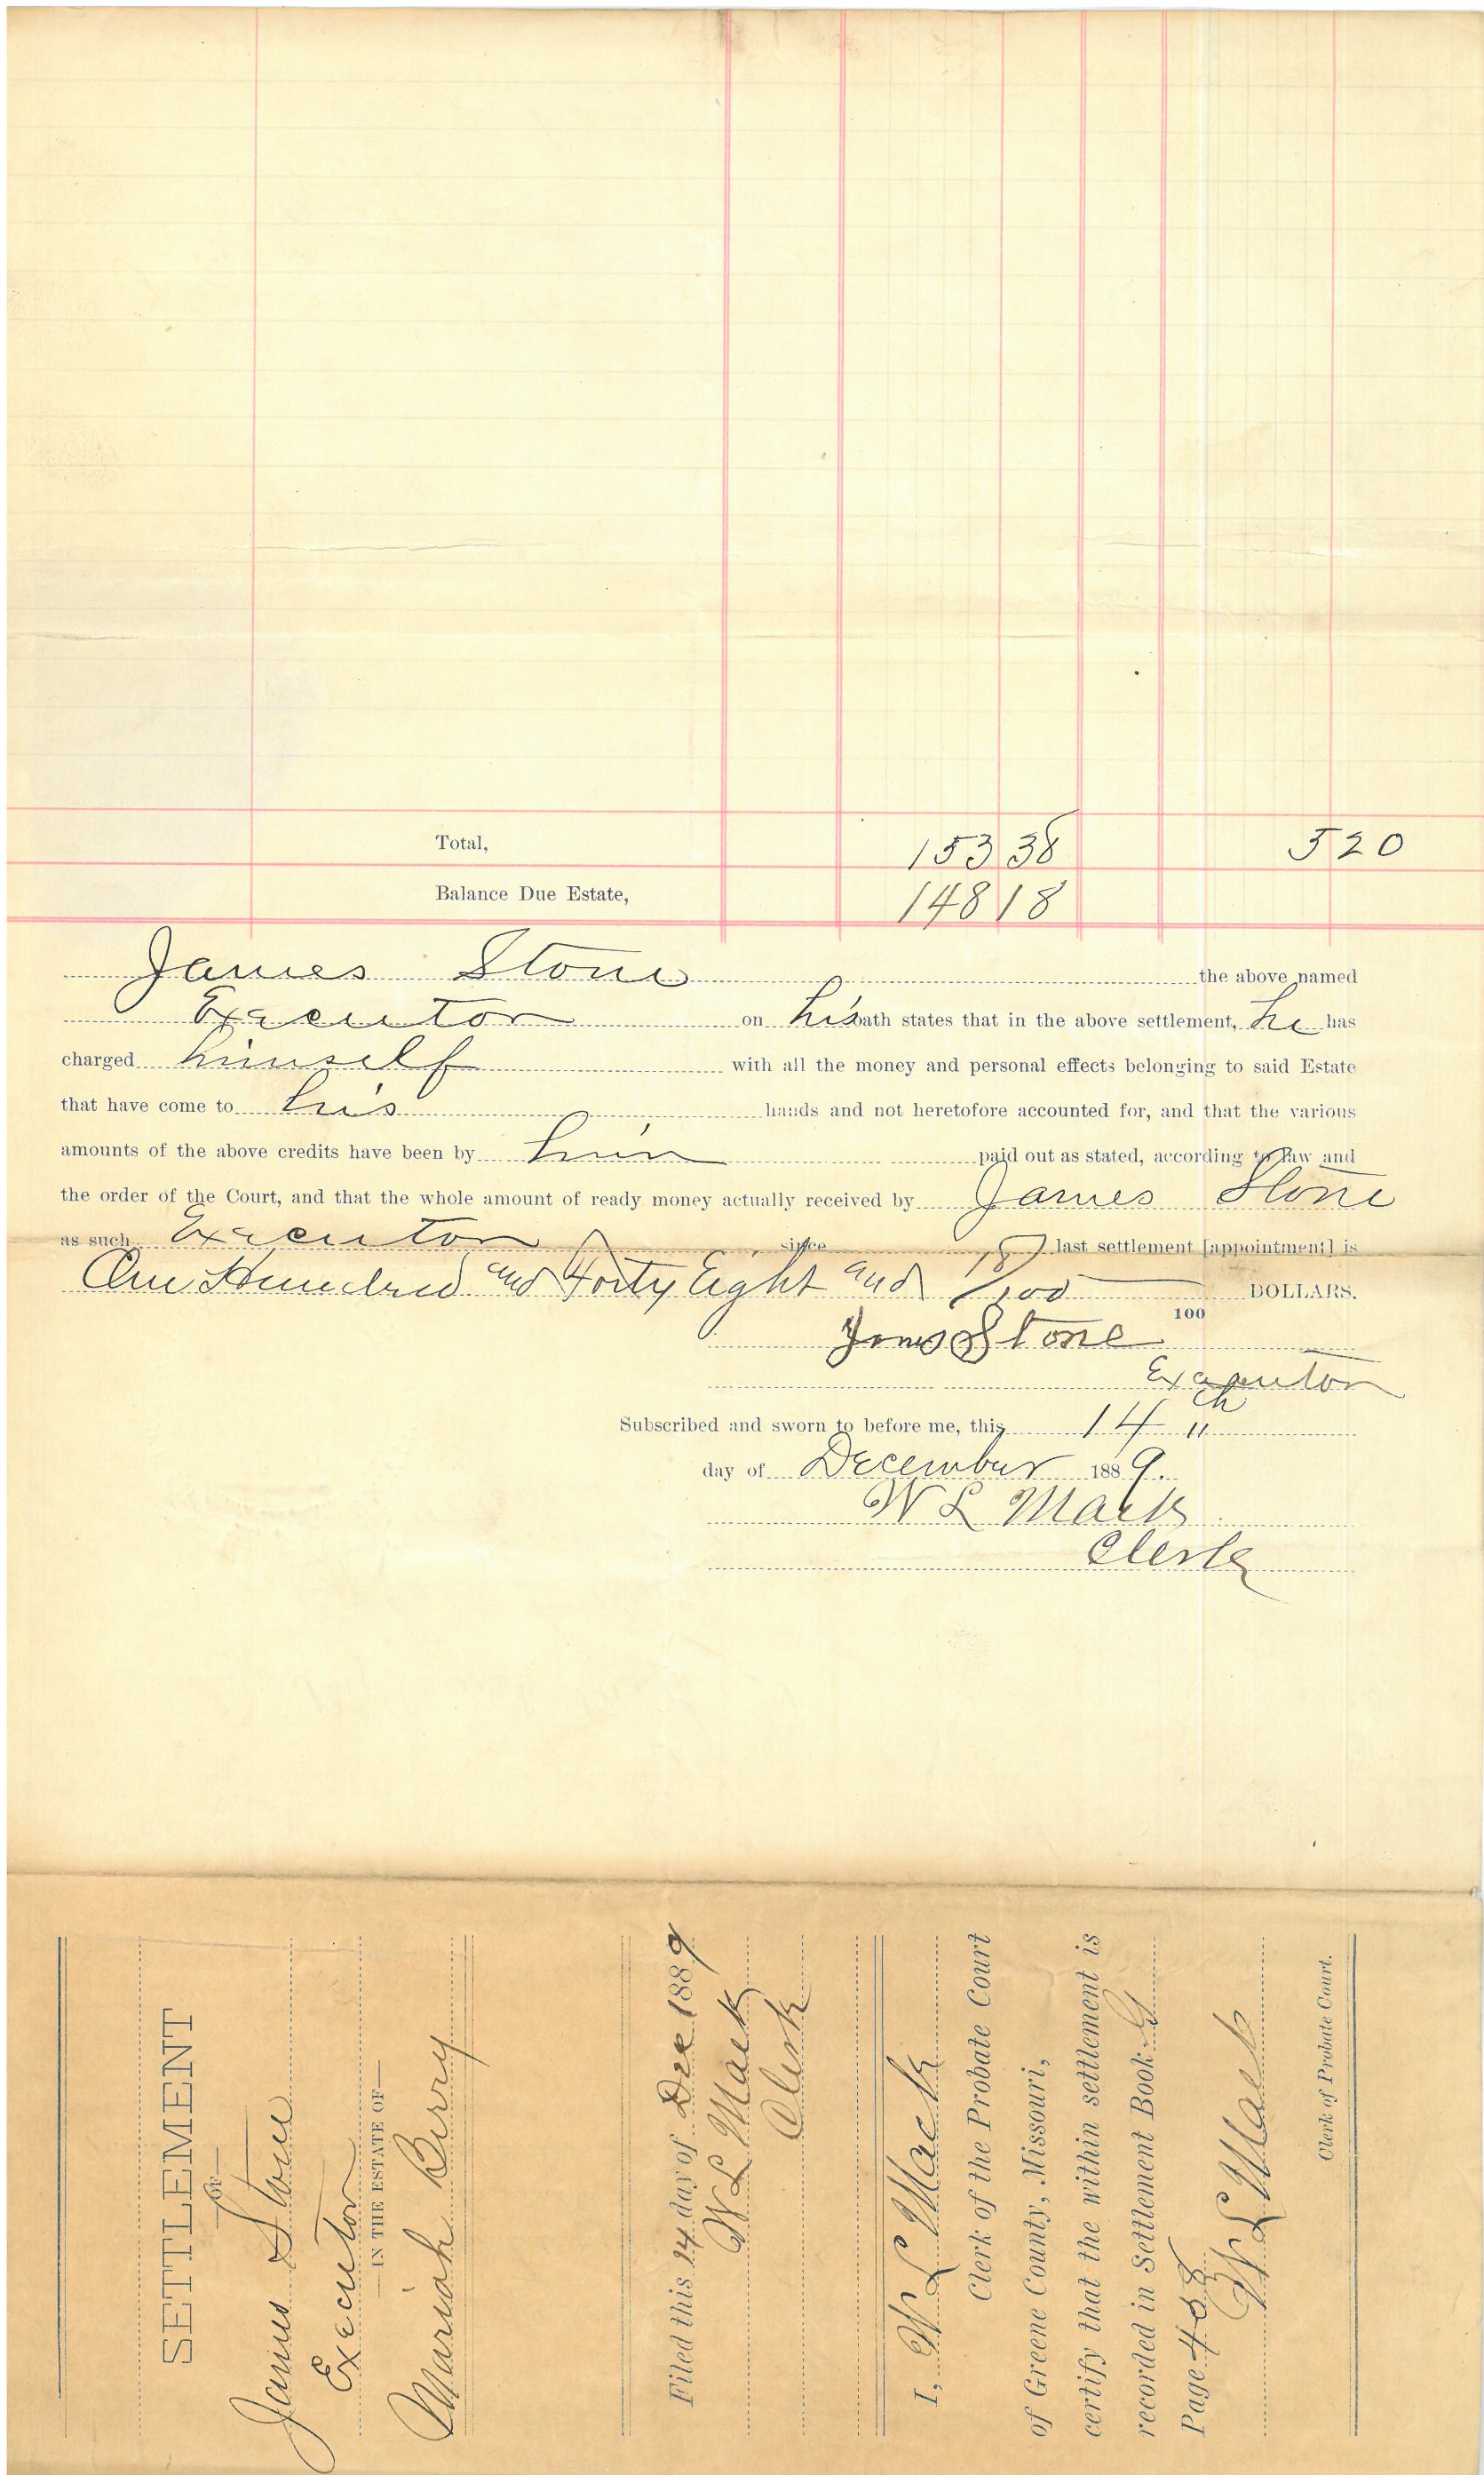 Total, 153 38 5 20
Balance Due Estate, 148 18
James Stone the above named
Executor on his oath states that in the above settlement, he has
charged himself with all the money and personal effects belonging to said Estate
that have come to his hands and not heretofore accounted for, and that the various
amounts of the above credits have been by him paid out as stated, according to law and
the order of the Court, and that the whole amount of ready money actually received by James Stone
as such Executor since last settlement [appointment] is
One Hundred and Forty Eight and 18/100 DOLLARS.
100
James Stone
Executor
Subscribed and sworn to before me, this 14th
day of December 1889.
W L Mack
Clerk
SETTLEMENT
—OF—
James Stone
Executor
—IN THE ESTATE OF—
Mariah Berry
Filed this 14 day of Dec 1889
W L Mack
Clerk
I, W L Mack
Clerk of the Probate Court
of Greene County, Missouri,
certify that the within settlement is
recorded in Settlement Book G
Page 458
W L Mack
Clerk of Probate Court.